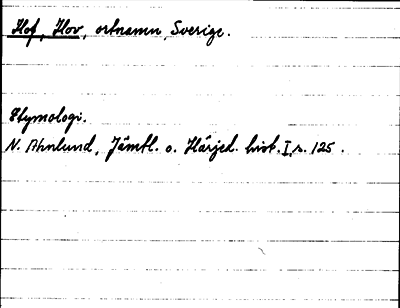 Hof, Hov, ortnamn, Sverige.
Etymologi.
N. Ahnlund, Jämtl. o. Härjed. hist. I, s. 125.